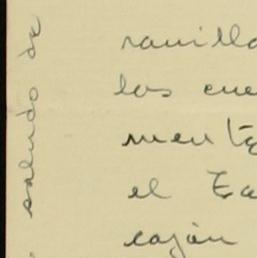 saludo de
ranilla
los cue
mente
el Ea
cajón